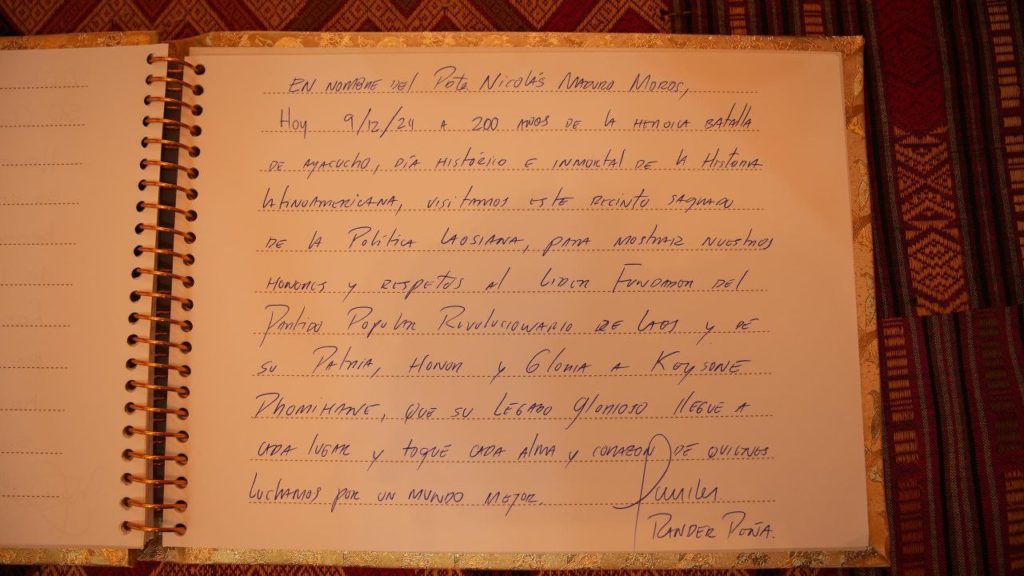 En nombre del Pdte Nicolás Maduro Moros,
Hoy 9/12/24 a 200 años de la heroica batalla
de Ayacucho, día histórico e inmortal de la Historia
Latinoamericana, visitamos este recinto sagrado
de la Política Laosiana, para mostrar nuestros
honores y respetos al Lider Fundador del
Partido Popular Revolucionario de Laos y de
su Patria, Honor y Gloria a Keysone
Phomihane, que su legado glorioso llegue a
cada lugar y toque cada alma y corazón de quienes
luchamos por un mundo mejor.
Rander Peña.